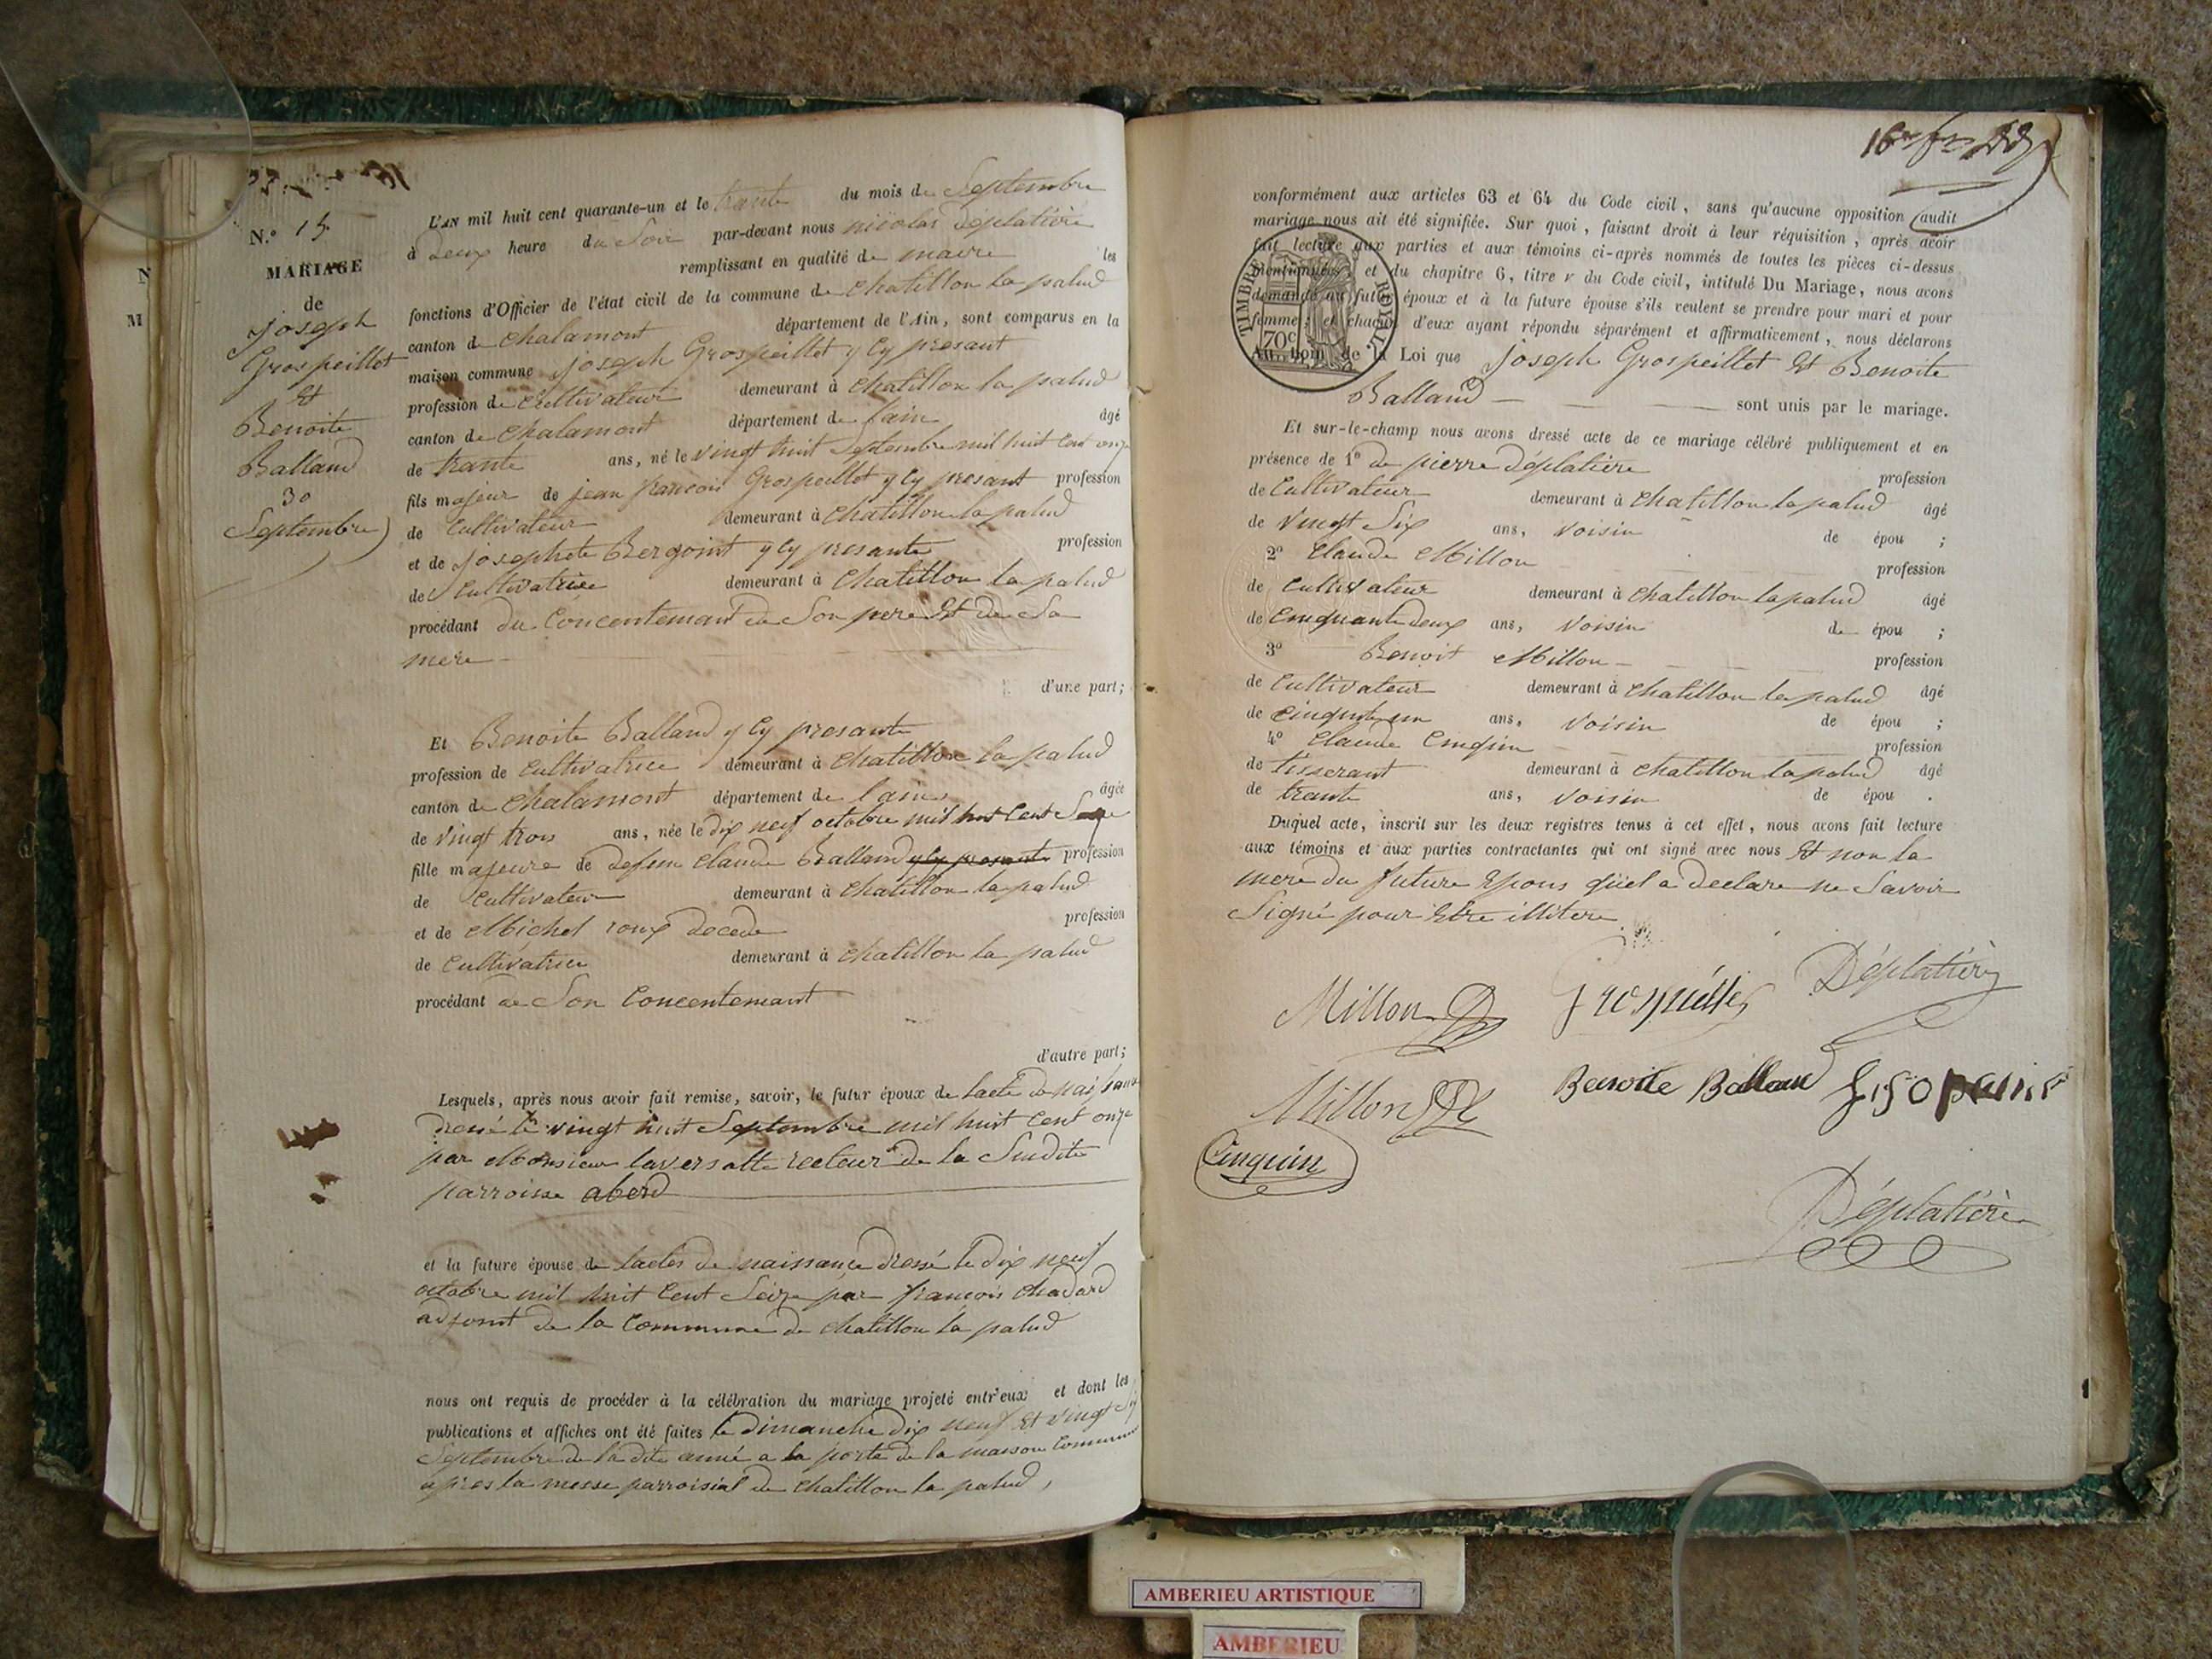 N.º 15
MARIAGE
de
Joseph
Grospeillet
Et
Benoite
Balland
30
Septembre
N
M
L'AN mil huit cent quarante-un et le trante du mois de Septembre
à Deux heure du Soir par-devant nous nicolas Déplatière
remplissant en qualité de maire les
fonctions d'Officier de l'état civil de la commune de Chatillon la palud
canton de Chalamont département de l'Ain, sont comparus en la
maison commune Joseph Grospeillet y Cy presant
profession de Cultivateur demeurant à Chatillon la palud
canton de Chalamont département de l'ain âgé
de trante ans, né le vingt huit Septembre mil huit Cent onze
fils majeur de jean francois Grospeillet y Cy presant profession
de Cultivateur demeurant à Chatillon la palud
et de Josephete Bergoint y Cy presante profession
de Cultivatrice demeurant à Chatillon la palud
procédant du Concentemant de Son pere Et de Sa
mere
d'une part;
Et Benoite Balland y Cy presante
profession de Cultivatrice demeurant à Chatillon la palud
canton de Chalamont département de l'ain âgée
de vingt trois ans, née le dix neuf octobre mil huit Cent Seize
fille majeure de defun Claude Balland y Cy presante profession
de Cultivateur demeurant à Chatillon la palud
et de Michel roux décede profession
de Cultivatrice demeurant à Chatillon la palud
procédant de Son Concentemant
d'autre part;
Lesquels, après nous avoir fait remise, savoir, le futur époux de lacte de naissance
dressé le vingt huit Septembre mil huit Cent onze
par Monsieur laversatte recteur de la Sudite
parroisse
et la future épouse de lactes de naissance dressé le dix neuf
octobre mil huit Cent Seize par francois Chadard
adjoint de la Commune de Chatillon la palud
nous ont requis de procéder à la célébration du mariage projeté entr'eux et dont les
publications et affiches ont été faites le Dimanche dix neuf Et vingt Six
Septembre de ladite année a la porte de la maison Commune
apres la messe parroisial de Chatillon la palud,
conformément aux articles 63 et 64 du Code civil, sans qu'aucune opposition audit
mariage nous ait été signifiée. Sur quoi, faisant droit à leur réquisition, après avoir
fait lecture aux parties et aux témoins ci-après nommés de toutes les pièces ci-dessus
mentionnées, et du chapitre 6, titre v du Code civil, intitulé Du Mariage, nous avons
demandé au futur époux et à la future épouse s'ils veulent se prendre pour mari et pour
femme; et chacun d'eux ayant répondu séparément et affirmativement, nous déclarons
Au nom de la Loi que Joseph Grospeillet Et Benoite
Balland sont unis par le mariage.
TIMBRE ROYAL
70c
Et sur-le-champ nous avons dressé acte de ce mariage célébré publiquement et en
présence de 1º de pierre Déplatière profession
de Cultivateur demeurant à Chatillon la palud âgé
de Vingt Six ans, Voisin de épou ;
2º Claude Millon profession
de Cultivateur demeurant à Chatillon la palud âgé
de Cinquante deux ans, Voisin de épou ;
3º Benoit Millon profession
de Cultivateur demeurant à Chatillon la palud âgé
de Cinquante un ans, Voisin de épou ;
4º Claude Cinquin profession
de tisserant demeurant à Chatillon la palud âgé
de trante ans, Voisin de épou .
Duquel acte, inscrit sur les deux registres tenus à cet effet, nous avons fait lecture
aux témoins et aux parties contractantes qui ont signé avec nous Et non la
mere du future Epous qüel a declare ne Savoir
Signé pour Etre illitere
Millon Déplatière
Millon Benoite Balland
Cinquin
Déplatière
AMBERIEU ARTISTIQUE
AMBERIEU